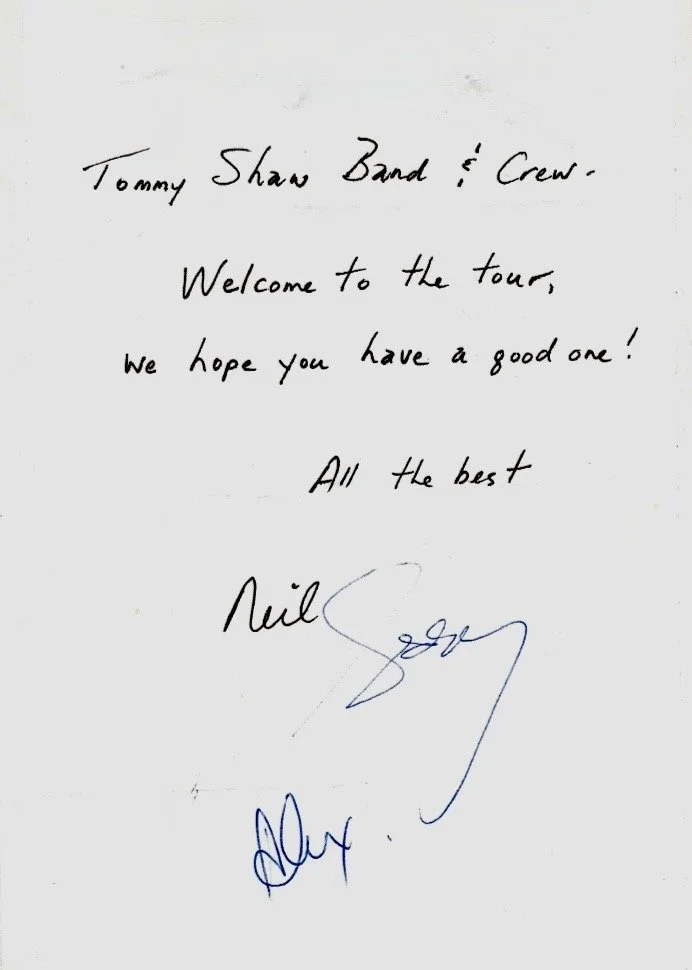 Tommy Shaw Band & Crew.
Welcome to the tour,
we hope you have a good one!
All the best
Neil
Alex